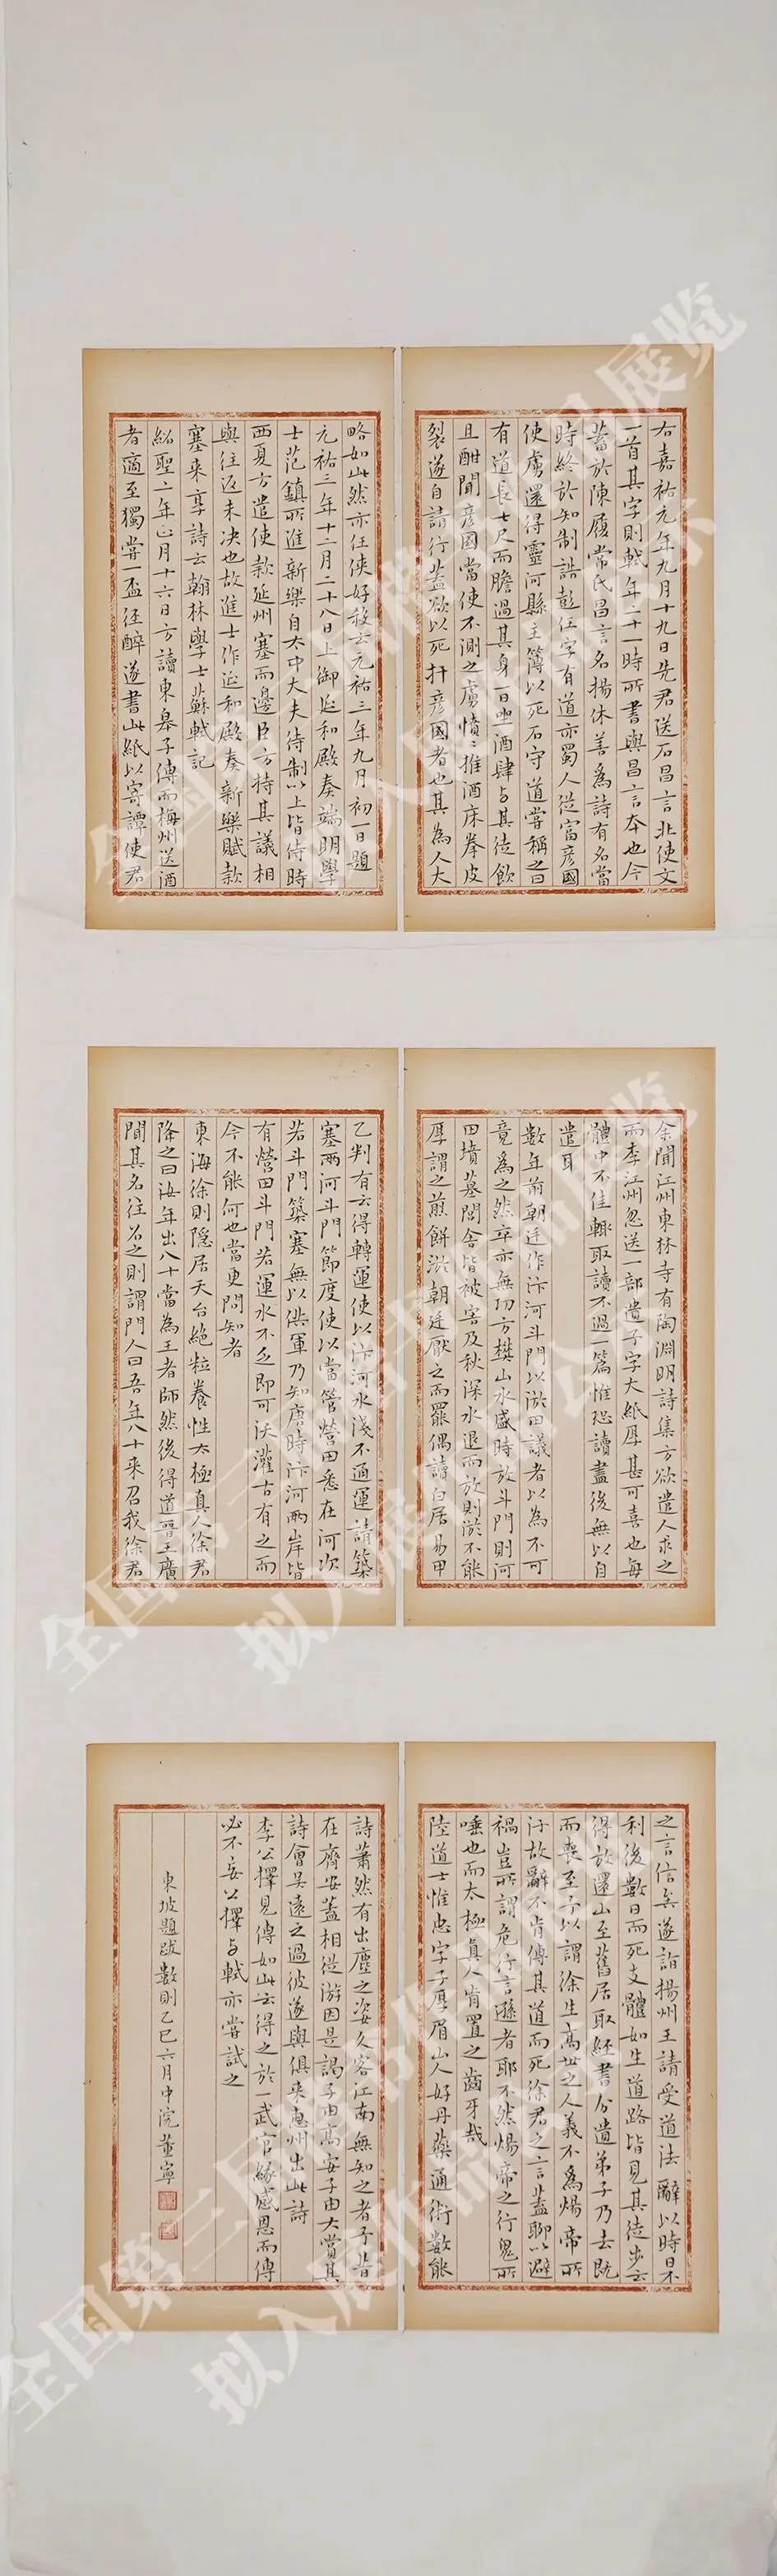 右嘉祐元年九月十九日先君送石昌言北使文
一首其字則軾年二十一時所書與昌言本也今
蓄於陳履常氏昌言名揚休善為詩有名當
時終於知制誥彭任字有道亦蜀人從富彦國
使虜還得靈河縣主簿以死石守道嘗稱之曰
有道長七尺而膽過其身一日坐酒肆与其徒飲
且酣聞彦國當使不測之虜憤〻推酒床拳皮
裂遂自請行蓋欲以死扞彦國者也其為人大
略如此然亦任俠好殺云元祐三年九月初一日題
元祐三年十二月二十八日上御延和殿奏端明學
士范鎮所進新樂自太中大夫待制以上皆侍時
西夏方遣使款延州塞而邊臣方持其議相
與往返未决也故進士作延和殿奏新樂賦款
塞来享詩云翰林學士蘇軾記
紹聖二年正月十六日方讀東皋子傳而梅州送酒
者適至獨嘗一盃徑醉遂書此紙以寄譚使君
余聞江州東林寺有陶淵明詩集方欲遣人求之
而李江州忽送一部遺予字大紙厚甚可喜也每
體中不佳輒取讀不過一篇惟恐讀盡後無以自
遣耳
數年前朝廷作汴河斗門以淤田議者以為不可
竟為之然卒亦無功方樊山水盛時放斗門則河
田墳墓閭舍皆被害及秋深水退而放則淤不能
厚謂之煎餅淤朝廷厭之而罷偶讀白居易甲
乙判有云得轉運使以汴河水淺不通運請築
塞兩河斗門節度使以當管營田悉在河次
若斗門築塞無以供軍乃知唐時汴河兩岸皆
有營田斗門若運水不乏即可沃灌古有之而
今不能何也當更問知者
東海徐則隠居天台絕粒養性太極真人徐君
降之曰汝年出八十當為王者師然後得道晋王廣
聞其名往召之則謂門人曰吾年八十来召我徐君
之言信矣遂詣揚州王請受道法辭以時日不
利後數日而死支體如生道路皆見其徒步云
得放還山至舊居取經書分遺弟子乃去既
而喪至予以謂徐生高世之人義不為煬帝所
汙故辭不肯傳其道而死徐君之言蓋聊以避
禍豈所謂危行言遜者耶不然煬帝之行鬼所
唾也而太極真人肯置之齒牙哉
陸道士惟忠字子厚眉山人好丹藥通術數能
詩蕭然有出塵之姿久客江南無知之者予昔
在齊安蓋相從游因是謁子由高安子由大賞其
詩會吴遠之過彼遂與俱来惠州出此詩
李公擇見傳如此云得之於一武官緣感恩而傳
必不妄公擇与軾亦嘗試之
東坡題跋數則乙巳六月中浣董寧
全国第三届
拟入展作品